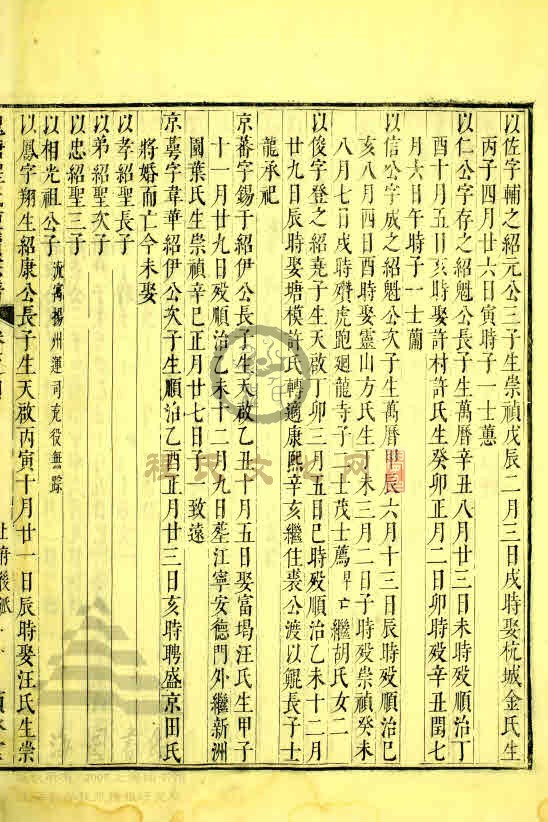 以佐字輔之紹元公三子生崇禎戊辰二月三日戌時娶杭城金氏生
丙子四月廿六日寅時子一士蕙
以仁公字存之紹魁公長子生萬曆辛丑八月廿三日未時殁順治丁
酉十月五日亥時娶許村許氏生癸卯正月二日卯時殁辛丑閏七
月六日午時子一士蘭
以信公字成之紹魁公次子生萬曆甲辰六月十三日辰時殁順治己
亥八月四日酉時娶靈山方氏生丁未三月二日子時殁崇禎癸未
八月七日戌時殯虎跑廻龍寺子二士茂士薦早亡繼胡氏女二
以俊字登之紹堯子生天啟丁卯三月五日巳時殁順治乙未十二月
廿九日辰時娶塘模許氏轉適康熙辛亥繼住裘公渡以鯤長子士
龍承祀
京蕃字錫于紹伊公長子生天啟乙丑十月五日娶富堨汪氏生甲子
十一月廿九日殁順治乙未十二月九日塟江寧安德門外繼新洲
園葉氏生崇禎辛巳正月廿七日子一致遠
京蕚字韋華紹伊公次子生順治乙酉正月廿三日亥時聘盛京田氏
將婚而亡今未娶
以孝紹聖長子
以弟紹聖次子
以忠紹聖三子
以相光祖公子 流寓揚州運司充役無踪
以鳳字翔生紹康公長子生天啟丙寅十月廿一日辰時娶汪氏生崇
程氏文化网